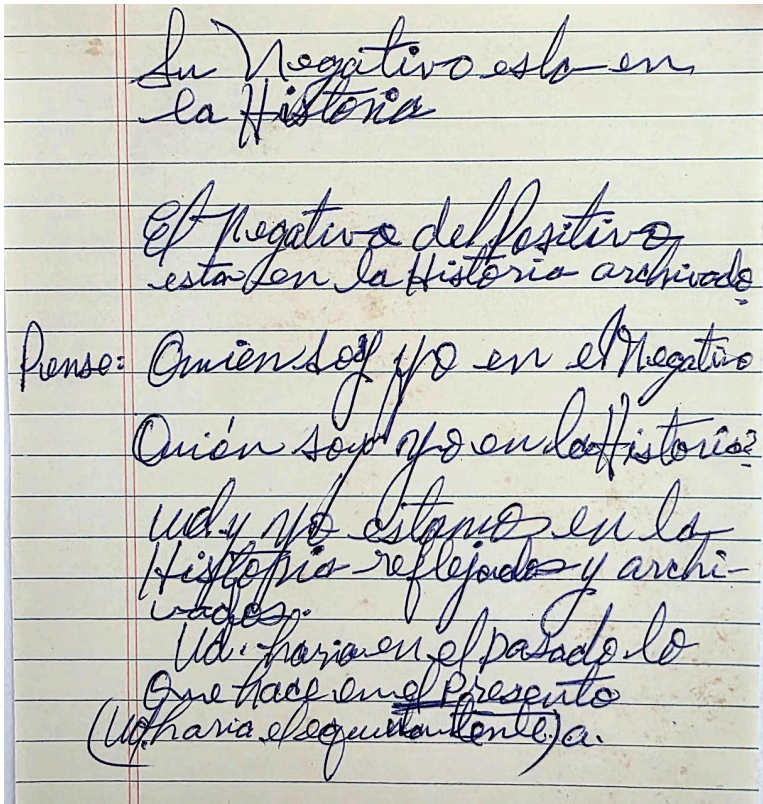 Su Negativo esta en
la Historia
El Negativo del Positivo
esta en la Historia archivado
Piense: Quien soy yo en el Negativo
Quién soy yo en la Historia?
Ud. y yo estamos en la
Historia reflejados y archi-
vados.
Ud. haria en el pasado lo
que hace en el Presente
(Ud. haria el a.